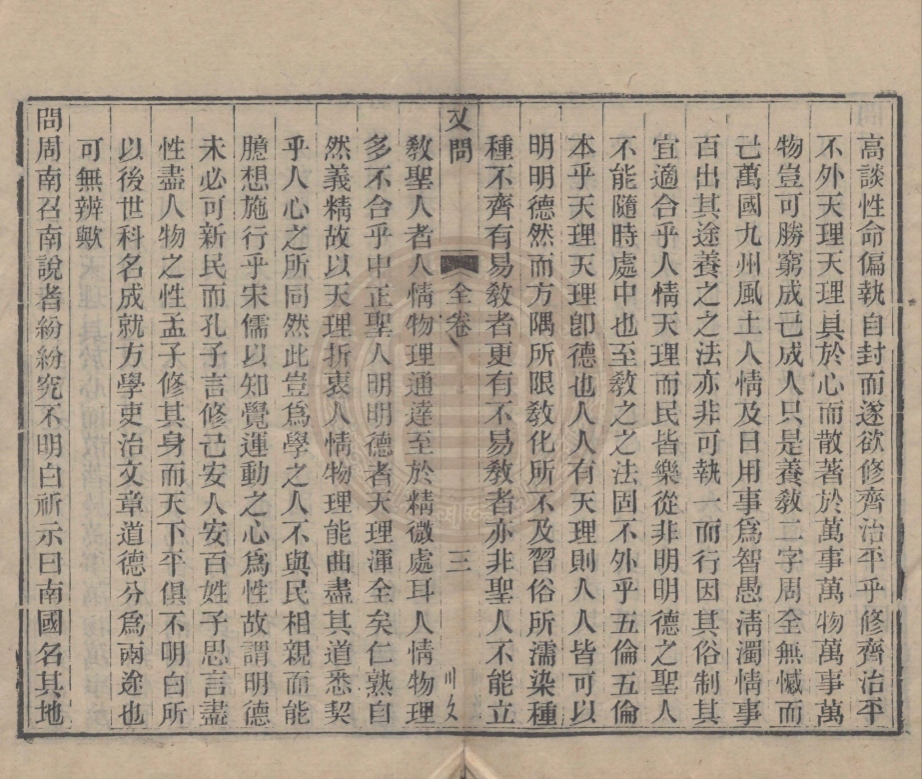 高談性命偏執自封而遂欲修齊治平乎修齊治平
不外天理天理具於心而散著於萬事萬物萬事萬
物豈可勝窮成己成人只是養教二字周全無憾而
己萬國九州風土人情及日用事爲智愚淸濁情事
百出其途養之之法亦非可執一而行因其俗制其
宜適合乎人情天理而民皆樂從非明明德之聖人
不能隨時處中也至敎之之法固不外乎五倫五倫
本乎天理天理卽德也人人有天理則人人皆可以
明明德然而方隅所限敎化所不及習俗所濡染種
種不齊有易敎者更有不易敎者亦非聖人不能立
又問
全卷
三
敎聖人者人情物理通達至於精微處耳人情物理
多不合乎中正聖人明明德者天理渾全矣仁熟自
然義精故以天理折衷人情物理能曲盡其道悉契
乎人心之所同然此豈爲學之人不與民相親而能
臆想施行乎宋儒以知覺運動之心爲性故謂明德
未必可新民而孔子言修己安人安百姓子思言盡
性盡人物之性孟子修其身而天下平俱不明白所
以後世科名成就方學吏治文章道德分爲兩途也
可無辨歟
問周南召南說者紛紛究不明白祈示曰南國名其地